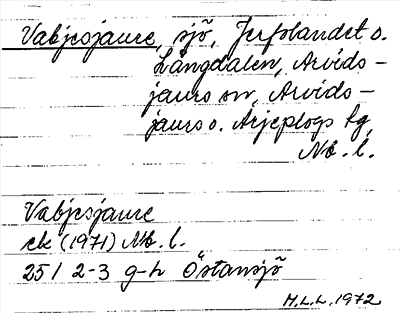 Vabjesjaure, sjö, Jerfolandet o.
Långdalen, Arvids-
jaurs sn, Arvids-
jaurs o. Arjeplogs tg,
Nb. l.
Vabjesjaure
ek (1971) Nb. l.
25I 2-3 g-h Östansjö
M.L.L. 1972